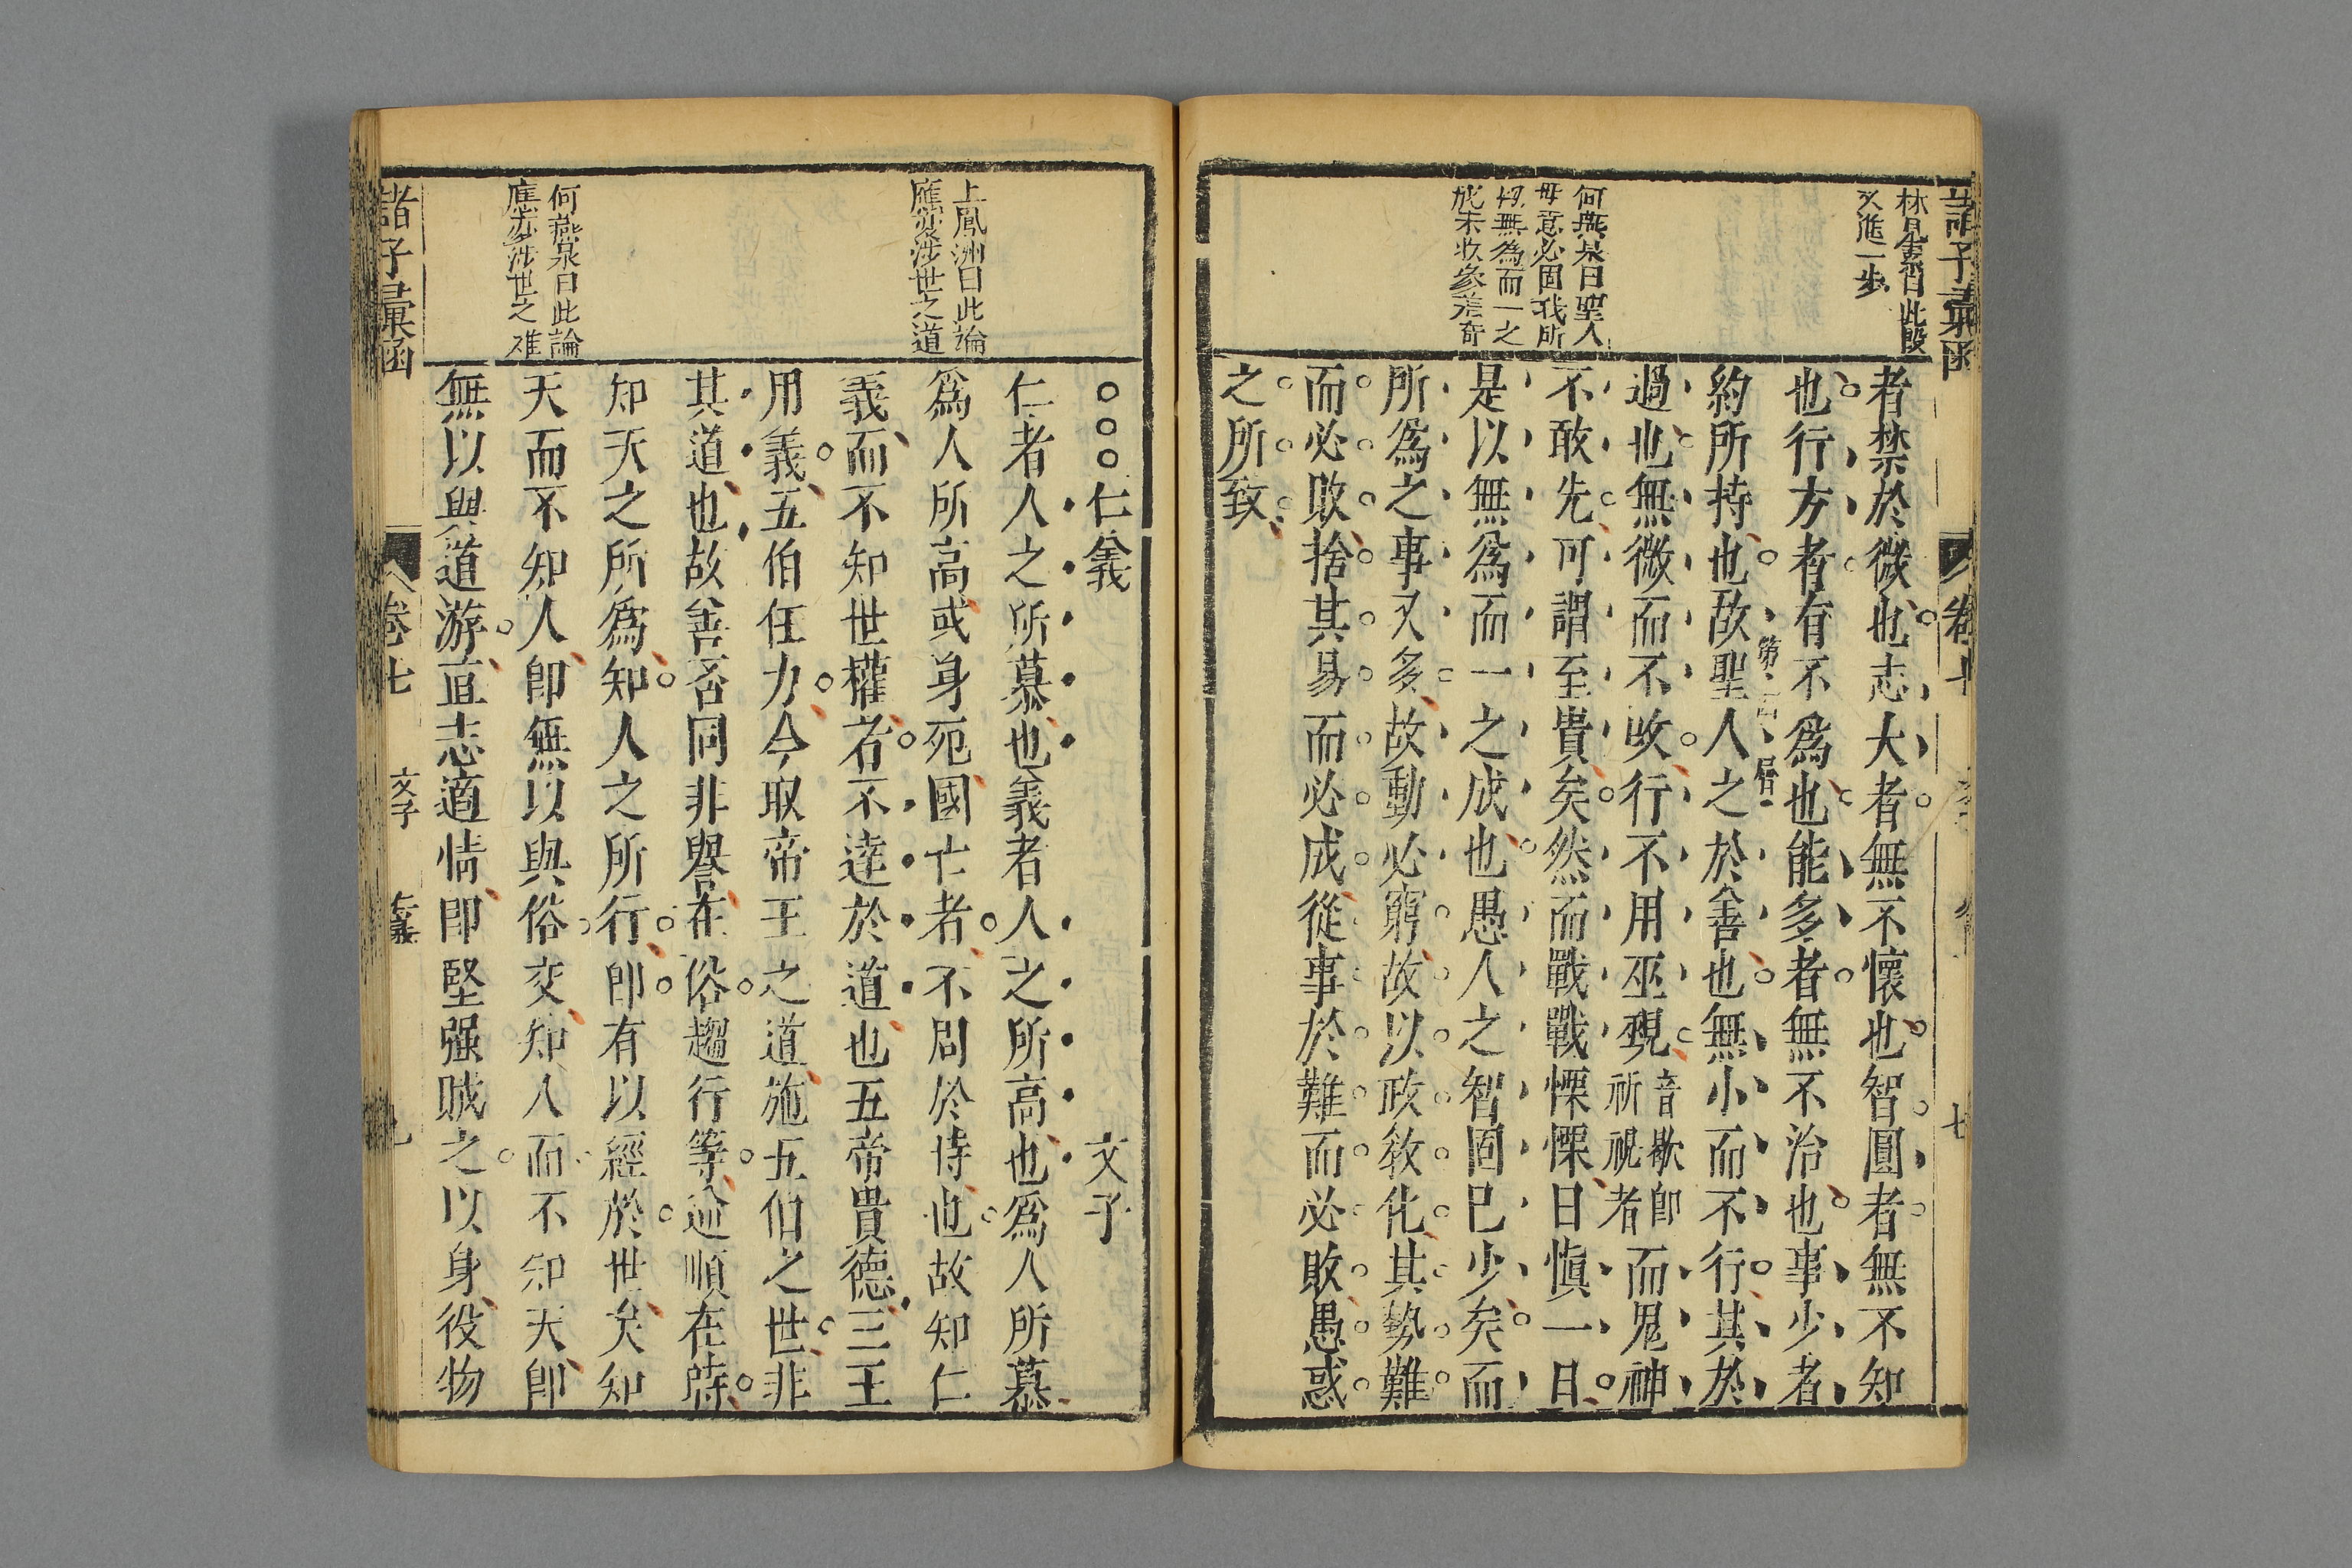 諸子彙函
卷七
七
林見素曰此段
又進一步
何燕泉曰聖人
毋意必固我所
以無為而一之
成未收參差奇
者禁於微也志大者無不懷也智圓者無不知
也行方者有不爲也能多者無不治也事少者
約所持也故聖人之於善也無小而不行其於
第二層
過也無微而不改行不用巫覡音歇即祈祝者而鬼神
不敢先可謂至貴矣然而戰戰慄慄日愼一日
是以無爲而一之成也愚人之智固已少矣而
所爲之事又多故動必窮故以政教化其勢難
而必敗捨其易而必成從事於難而必敗愚惑
之所致
上鳳洲曰此論
應變涉世之道
何燕泉曰此論
應亦多涉世之难
○○○仁義 文子
仁者人之所慕也義者人之所高也爲人所慕
爲人所高或身死國亡者不周於時也故知仁
義而不知世權者不達於道也五帝貴德三王
用義五伯任力今取帝王之道施五伯之世非
其道也故善否同非譽在俗趨行等逆順在時
知天之所爲知人之所行即有以經於世矣知
天而不知人即無以與俗交知人而不知天即
無以與道游直志適情即堅强賊之以身役物
諸子彙函
卷七
文子
仁義